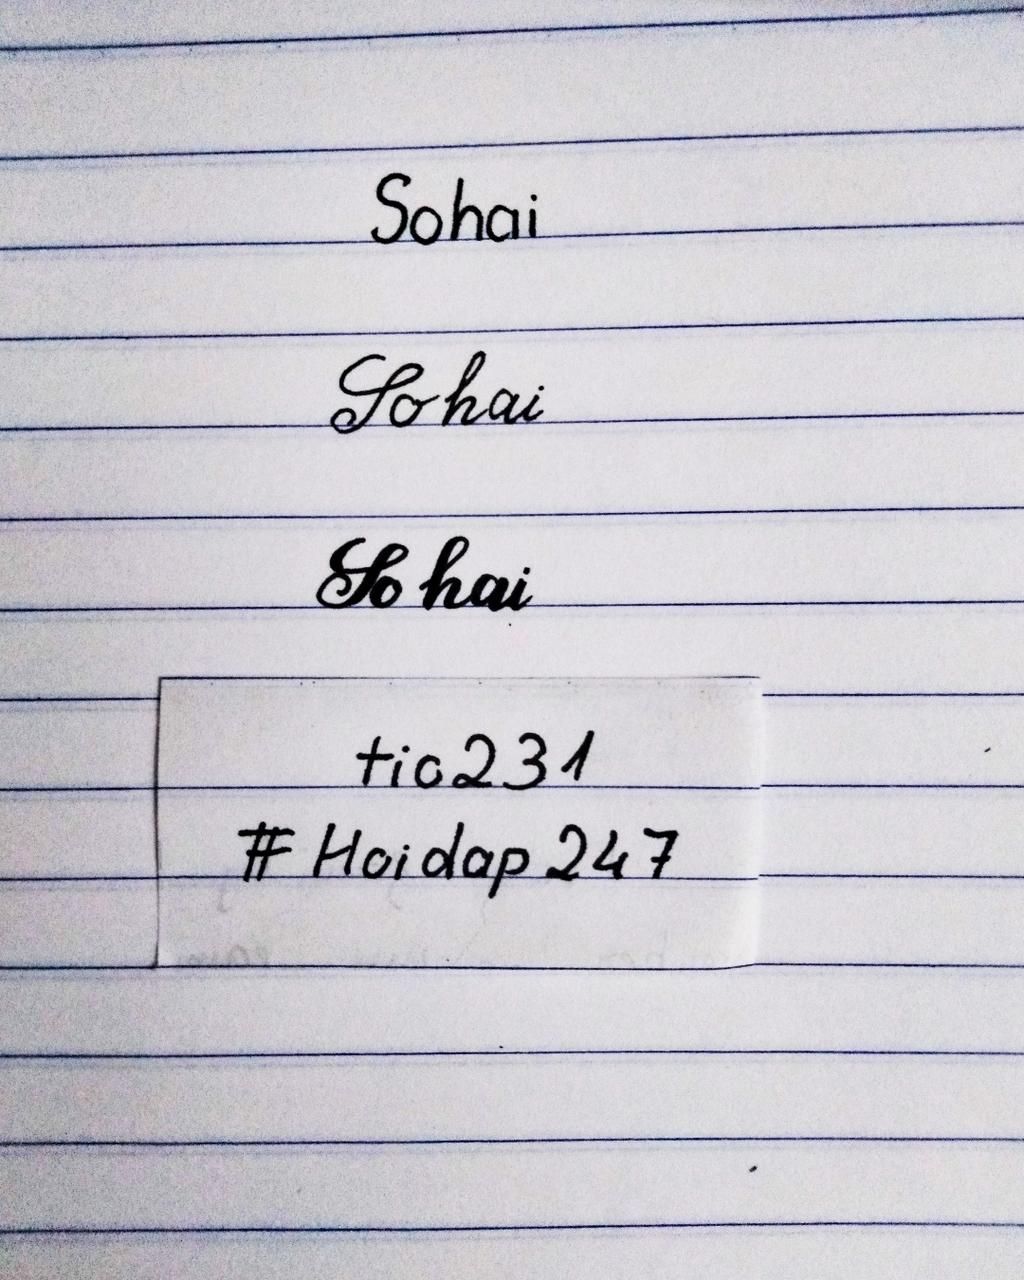 Sohai
Sohai
Sohai
tio231
# Hoidap 247